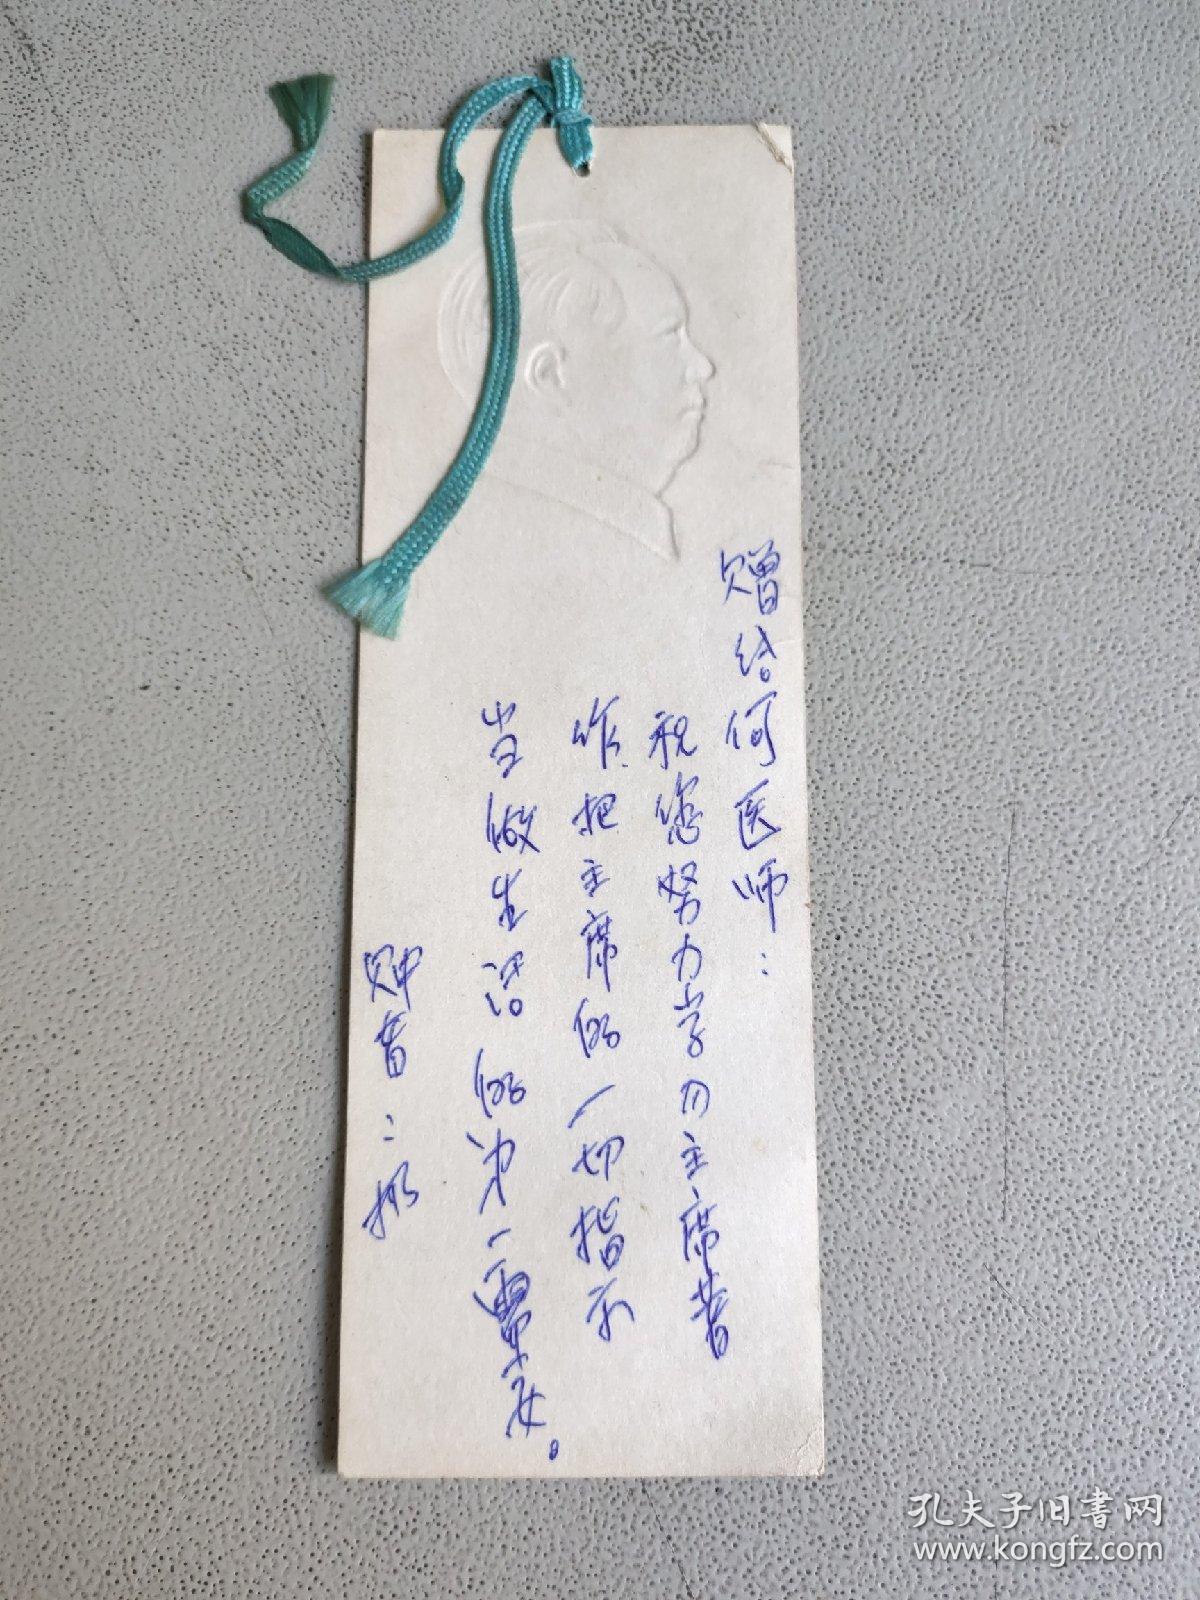 赠给何医师：
祝您努力学习主席著
作把主席的一切指示
当做生活的第一需要。
孔夫子旧书网
www.kongfz.com